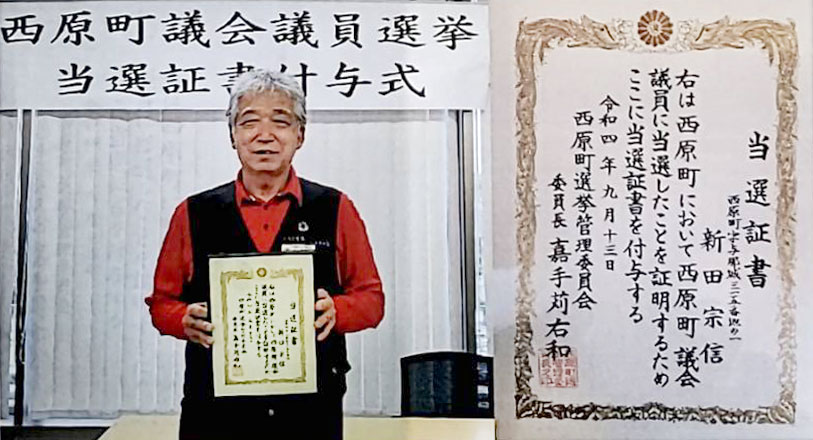 西原町議会議員選挙
当選証書付与式
当選証書
西原町字与那城三一五番地の一
新田宗信
右は西原町において西原町議会
議員に当選したことを証明するため
ここに当選証書を付与する
令和四年九月十三日
西原町選挙管理委員会
委員長嘉手苅右和